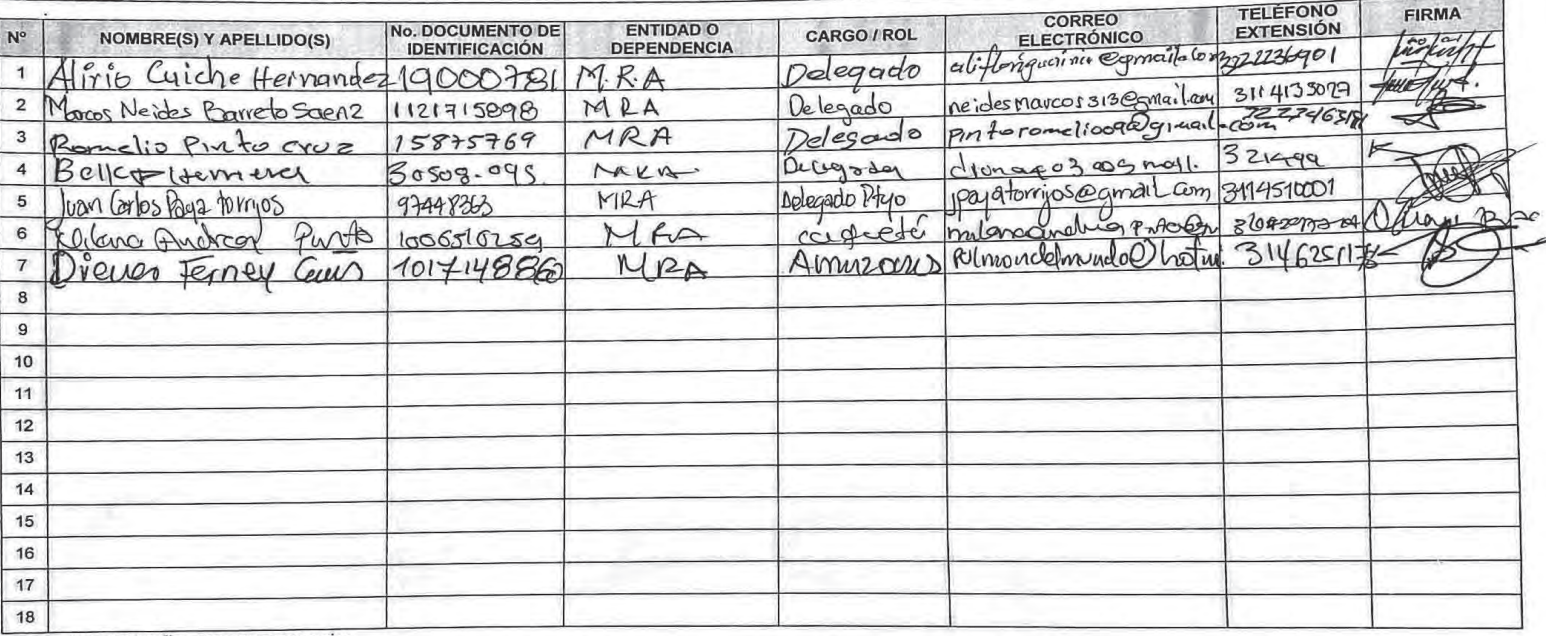 Nº NOMBRE(S) Y APELLIDO(S) No. DOCUMENTO DE IDENTIFICACIÓN ENTIDAD O DEPENDENCIA CARGO / ROL CORREO ELECTRÓNICO TELÉFONO EXTENSIÓN FIRMA
1 Alirio Cuiche Hernandez 19000781 M.R.A Delegado
2 Marcos Neides Barreto Saenz 1121715898 MRA Delegado neidesmarcos313@gmail.com 3114135027
3 Romelio Pinto cruz 15875769 MRA Delegado pintoromelio09@gmail.com
4 Herrera 30508.095 321499
5 Juan Carlos Paya torrijos 97448363 MRA Delegado Ptyo jpayatorrijos@gmail.com 3114510001
6 Pinto 1006510259 MRA caquetá
7 Ferney 1017148860 MRA Amazonas
8
9
10
11
12
13
14
15
16
17
18